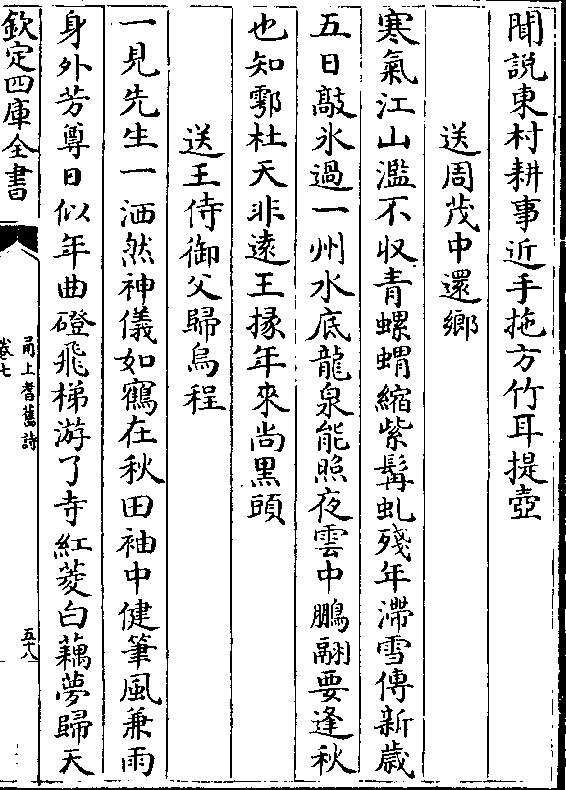 聞說東村耕事近手拖方竹耳提壺
送周茂中還鄉
寒氣江山濫不収青螺蝟縮紫髯虬殘年滯雪傳新歳
五日敲氷過一州水底龍泉能照夜雲中鵬翮要逢秋
也知鄠杜天非遠王掾年來尚黒頭
送王侍御父歸烏程
一見先生一洒然神儀如鶴在秋田袖中健筆風兼雨
身外芳尊日似年曲磴飛梯游了寺紅菱白藕夢歸天
欽定四庫全書
甬上耆舊詩
卷七
五八